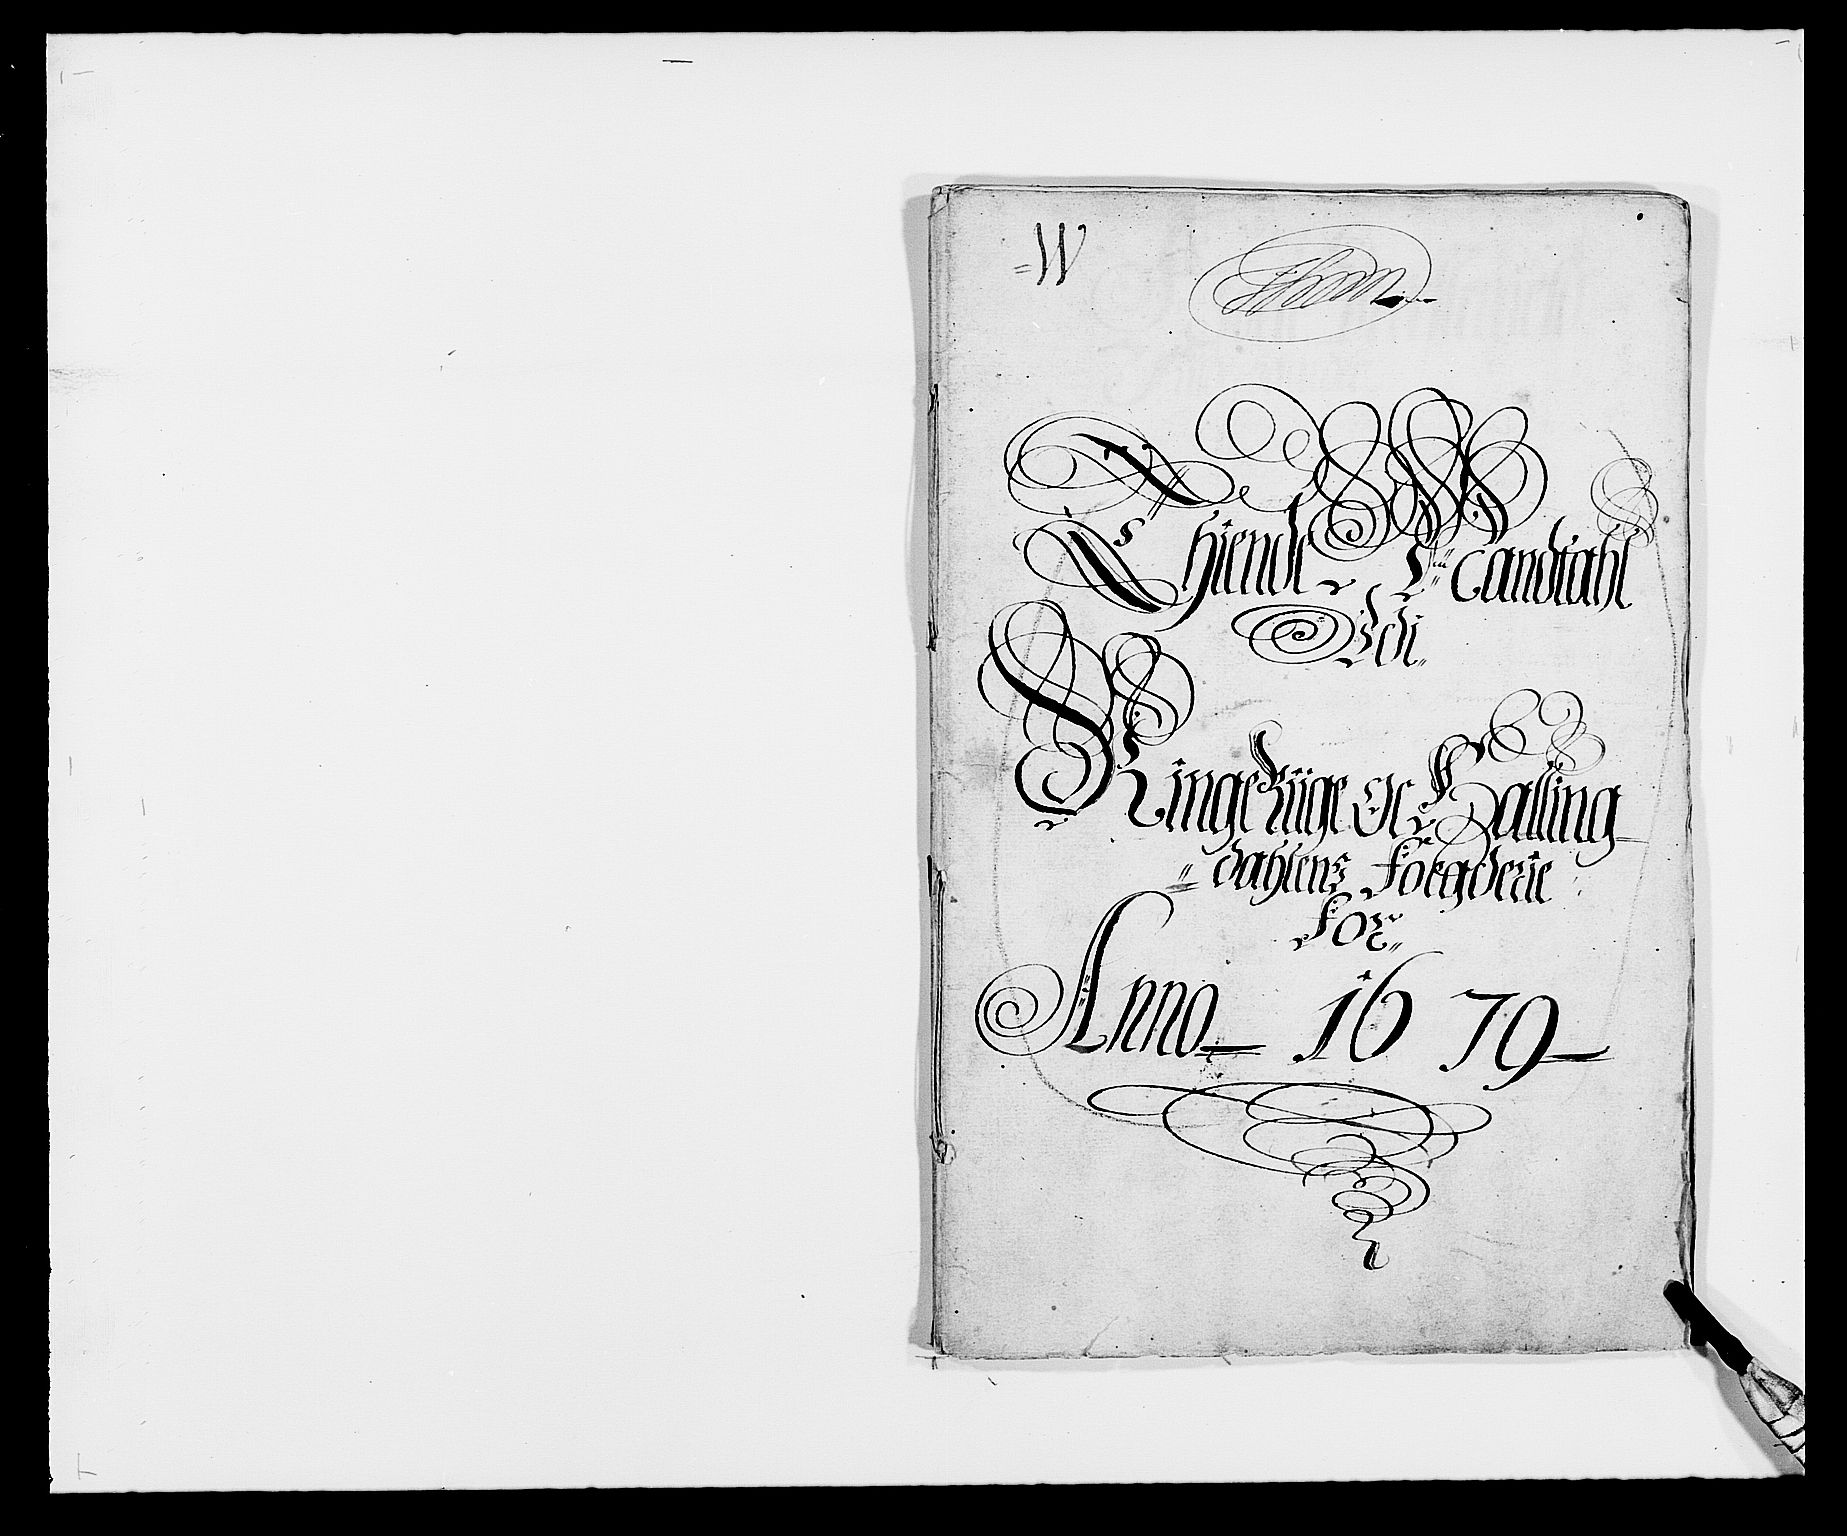 W
Thiende Mandtahl
Udj
Ringeriige Oc Halling
dahlens Fogderie
For
Anno 1679